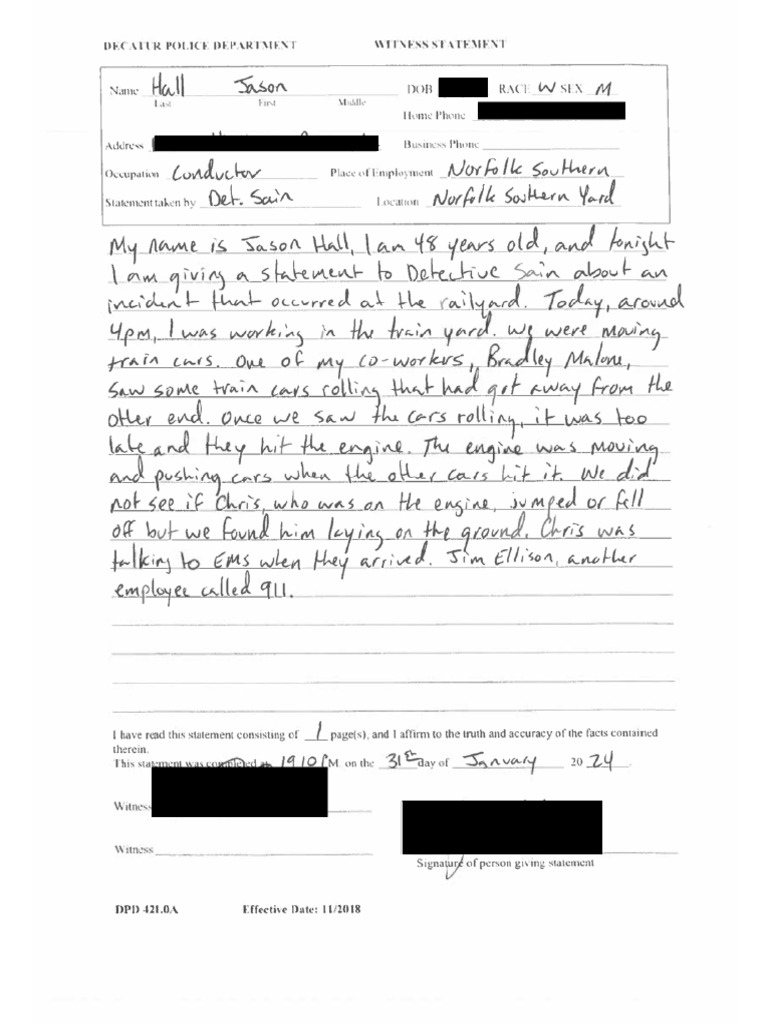 DECATUR POLICE DEPARTMENT WITNESS STATEMENT
Name Hall Jason DOB RACE W SEX M
Last First Middle
Home Phone
Address Business Phone
Occupation Conductor Place of Employment Norfolk Southern
Statement taken by Det. Sain Location Norfolk Southern Yard
My name is Jason Hall, I am 48 years old, and tonight
I am giving a statement to Detective Sain about an
incident that occurred at the railyard. Today, around
4pm, I was working in the train yard. We were moving
train cars. One of my co-workers, Bradley Malone,
saw some train cars rolling that had got away from the
other end. Once we saw the cars rolling, it was too
late and they hit the engine. The engine was moving
and pushing cars when the other cars hit it. We did
not see if Chris, who was on the engine, jumped or fell
off but we found him laying on the ground. Chris was
talking to EMS when they arrived. Jim Ellison, another
employee called 911.
I have read this statement consisting of 1 page(s), and I affirm to the truth and accuracy of the facts contained
therein.
This statement was completed at 1910 PM on the 31st day of January 20 24.
Witness
Witness
Signature of person giving statement
DPD 421.0A Effective Date: 11/2018